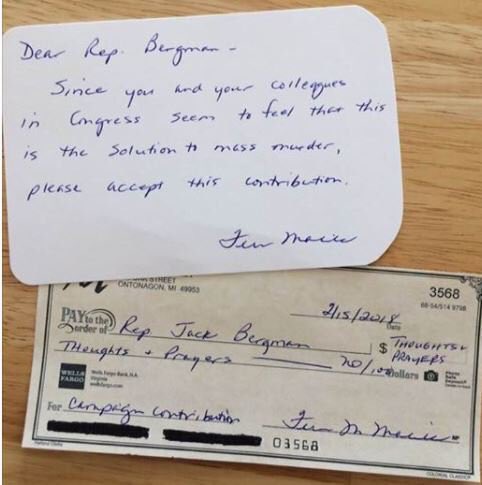 Dear Rep. Bergman -
Since you and your colleagues
in Congress seem to feel that this
is the solution to mass murder,
please accept this contribution.
STREET
ONTONAGON, MI 49953
3568
2/15/2018
Date
PAY to the
order of Rep Jack Bergman $ THOUGHTS +
PRAYERS
Thoughts + Prayers no/100 Dollars
WELLS
FARGO
Wells Fargo Bank, N.A.
Virginia
wellsfargo.com
For Campaign contribution
03568